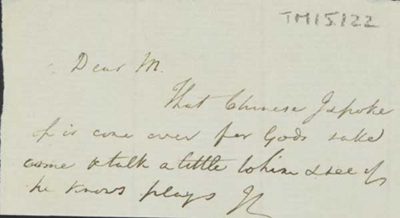 TM15.122
Dear M.
That Chinese I spoke
of is come over for Gods sake
come & talk a little to him & see if
he knows plays